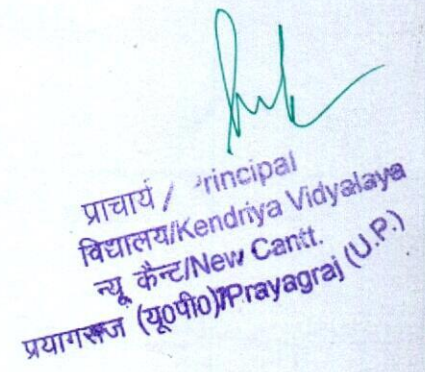 प्राचार्य / Principal
विद्यालय/Kendriya Vidyalaya
न्यू कैन्ट/New Cantt.
प्रयागराज (यू०पी०)/Prayagraj (U.P.)